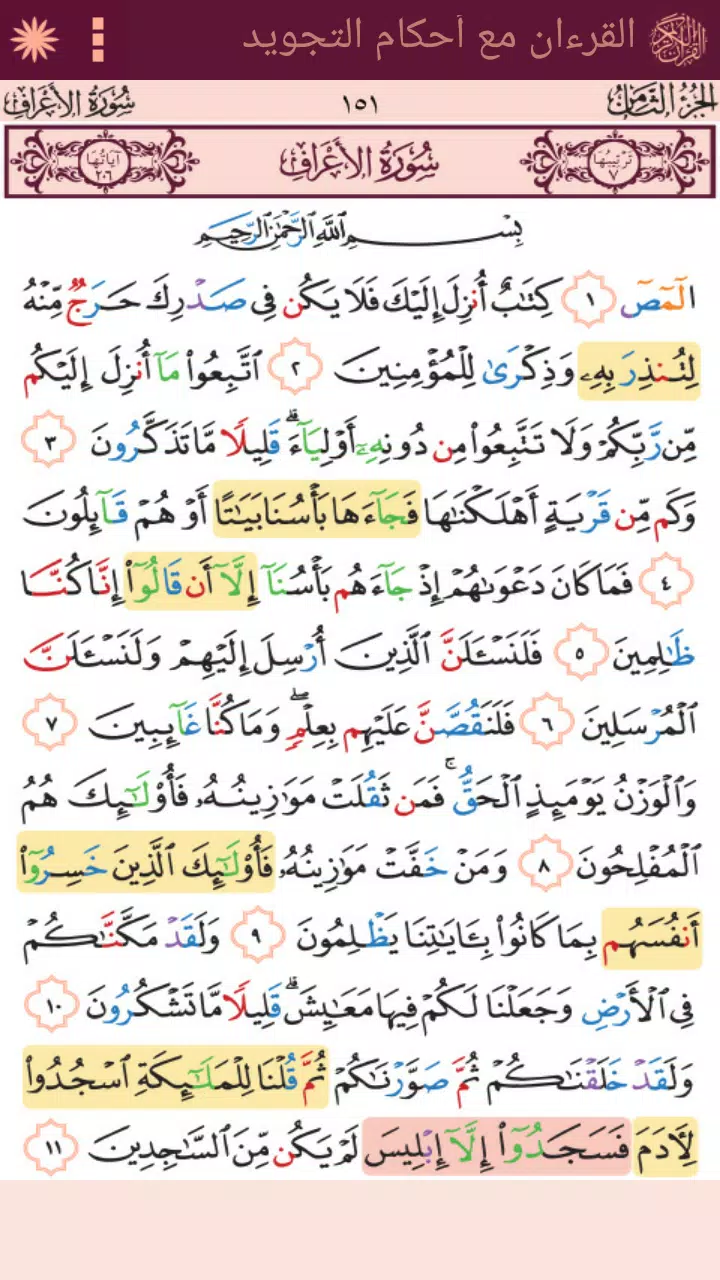 القرءان مع أحكام التجويد
الجزء الثامن ١٥١ سورة الأعراف
ترتيبها ٧ سُورَةُ الأَعْرَافِ آياتها ٢٠٦
بِسْمِ اللَّهِ الرَّحْمَٰنِ الرَّحِيمِ
الٓمٓصٓ ١ كِتَٰبٌ أُنزِلَ إِلَيْكَ فَلَا يَكُن فِى صَدْرِكَ حَرَجٌ مِّنْهُ
لِتُنذِرَ بِهِۦ وَذِكْرَىٰ لِلْمُؤْمِنِينَ ٢ ٱتَّبِعُوا۟ مَآ أُنزِلَ إِلَيْكُم
مِّن رَّبِّكُمْ وَلَا تَتَّبِعُوا۟ مِن دُونِهِۦٓ أَوْلِيَآءَ ۗ قَلِيلًا مَّا تَذَكَّرُونَ ٣
وَكَم مِّن قَرْيَةٍ أَهْلَكْنَٰهَا فَجَآءَهَا بَأْسُنَا بَيَٰتًا أَوْ هُمْ قَآئِلُونَ
٤ فَمَا كَانَ دَعْوَىٰهُمْ إِذْ جَآءَهُم بَأْسُنَآ إِلَّآ أَن قَالُوٓا۟ إِنَّا كُنَّا
ظَٰلِمِينَ ٥ فَلَنَسْـَٔلَنَّ ٱلَّذِينَ أُرْسِلَ إِلَيْهِمْ وَلَنَسْـَٔلَنَّ
ٱلْمُرْسَلِينَ ٦ فَلَنَقُصَّنَّ عَلَيْهِم بِعِلْمٍ ۖ وَمَا كُنَّا غَآئِبِينَ ٧
وَٱلْوَزْنُ يَوْمَئِذٍ ٱلْحَقُّ ۚ فَمَن ثَقُلَتْ مَوَٰزِينُهُۥ فَأُو۟لَٰٓئِكَ هُمُ
ٱلْمُفْلِحُونَ ٨ وَمَنْ خَفَّتْ مَوَٰزِينُهُۥ فَأُو۟لَٰٓئِكَ ٱلَّذِينَ خَسِرُوٓا۟
أَنفُسَهُم بِمَا كَانُوا۟ بِـَٔايَٰتِنَا يَظْلِمُونَ ٩ وَلَقَدْ مَكَّنَّٰكُمْ
فِى ٱلْأَرْضِ وَجَعَلْنَا لَكُمْ فِيهَا مَعَٰيِشَ ۗ قَلِيلًا مَّا تَشْكُرُونَ ١٠
وَلَقَدْ خَلَقْنَٰكُمْ ثُمَّ صَوَّرْنَٰكُمْ ثُمَّ قُلْنَا لِلْمَلَٰٓئِكَةِ ٱسْجُدُوا۟
لِـَٔادَمَ فَسَجَدُوٓا۟ إِلَّآ إِبْلِيسَ لَمْ يَكُن مِّنَ ٱلسَّٰجِدِينَ ١١